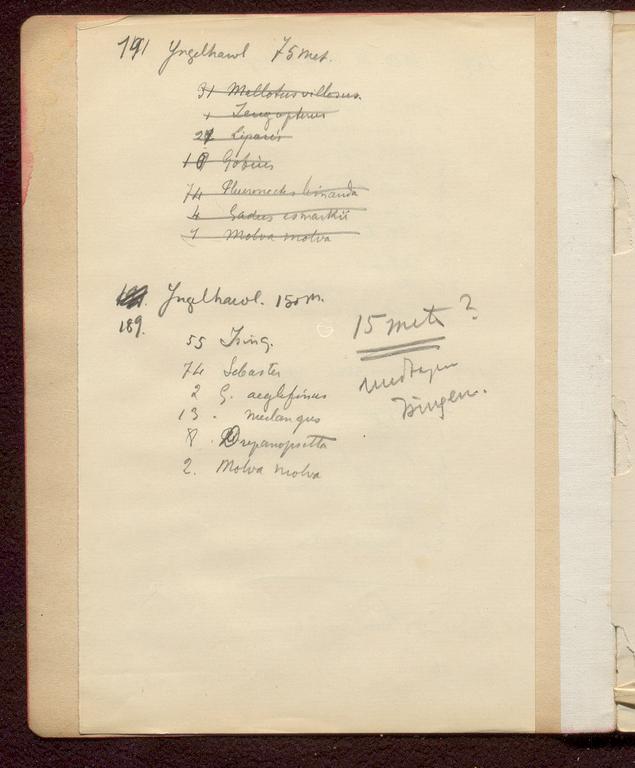 191 Yngelhawl 75 met.
31 Mallotus villosus.
1 
27 Liparis
10 Gobius
74 Pleuronectes limanda
4 Gadus esmarkii
1 Molva molva
Yngelhawl. 150 m.
189.
15 met ?
55 Ising.
74 Sebastes
2 G. aeglefinus
13 . merlangus
8 . Drepanopsetta
2. Molva molva
Isingen.